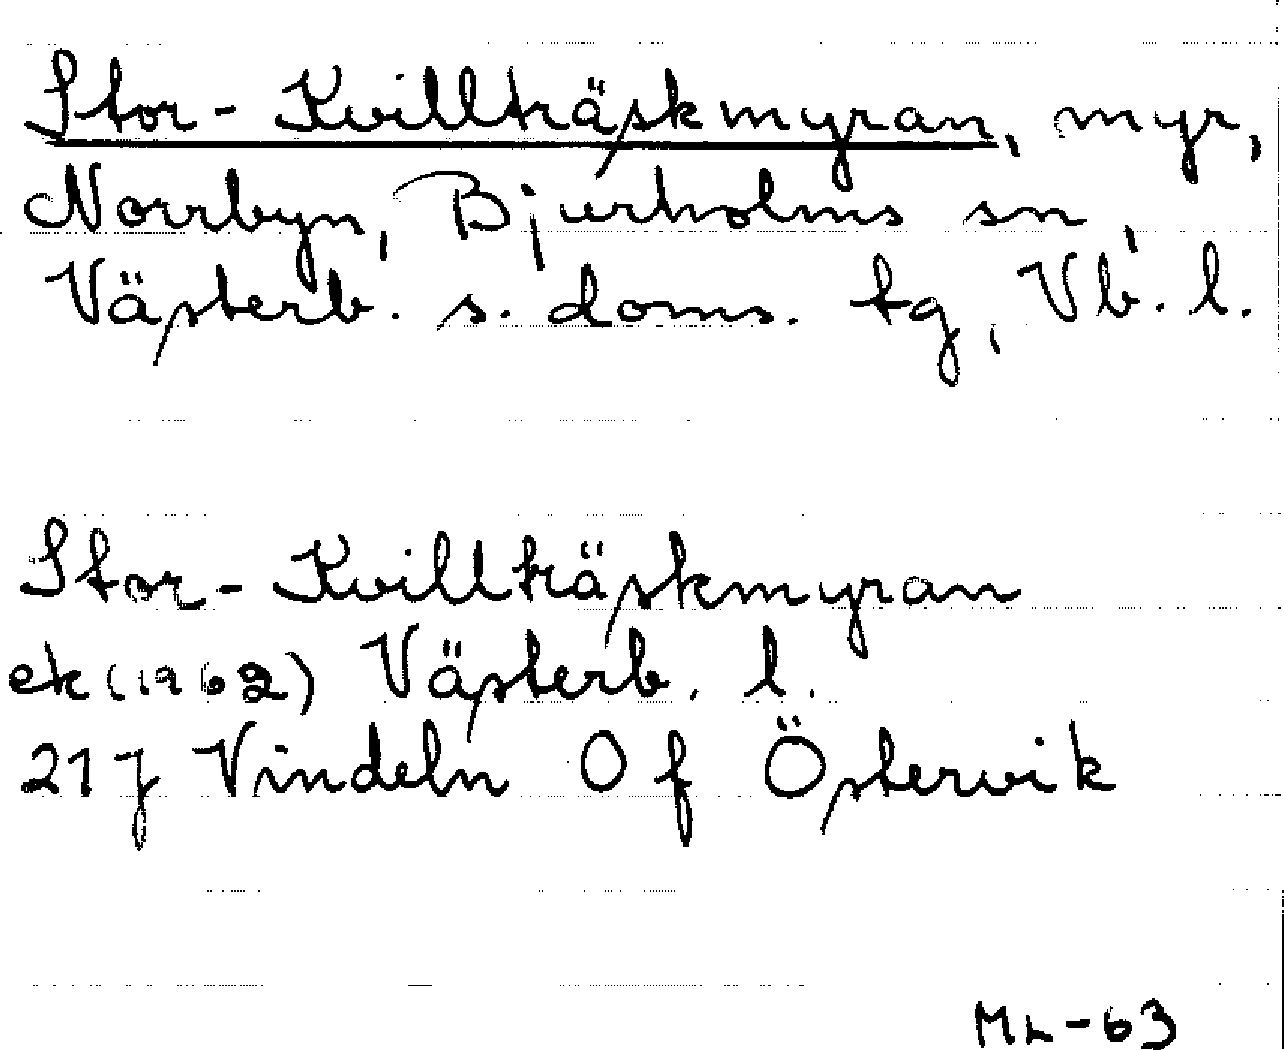 Stor-Kvillträskmyran, myr,
Norrbyn, Bjurholms sn,
Västerb. s. doms. tg, Vb. l.
Stor-Kvillträskmyran
ek (1962) Västerb. l.
21 J Vindeln 0 f Östervik
ML-63